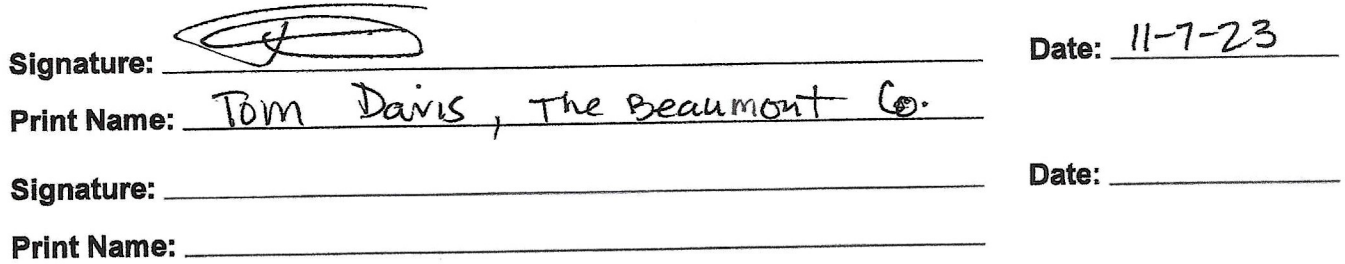 Signature: Date: 11-7-23
Print Name: Tom Davis, The Beaumont Co.
Signature: Date:
Print Name: